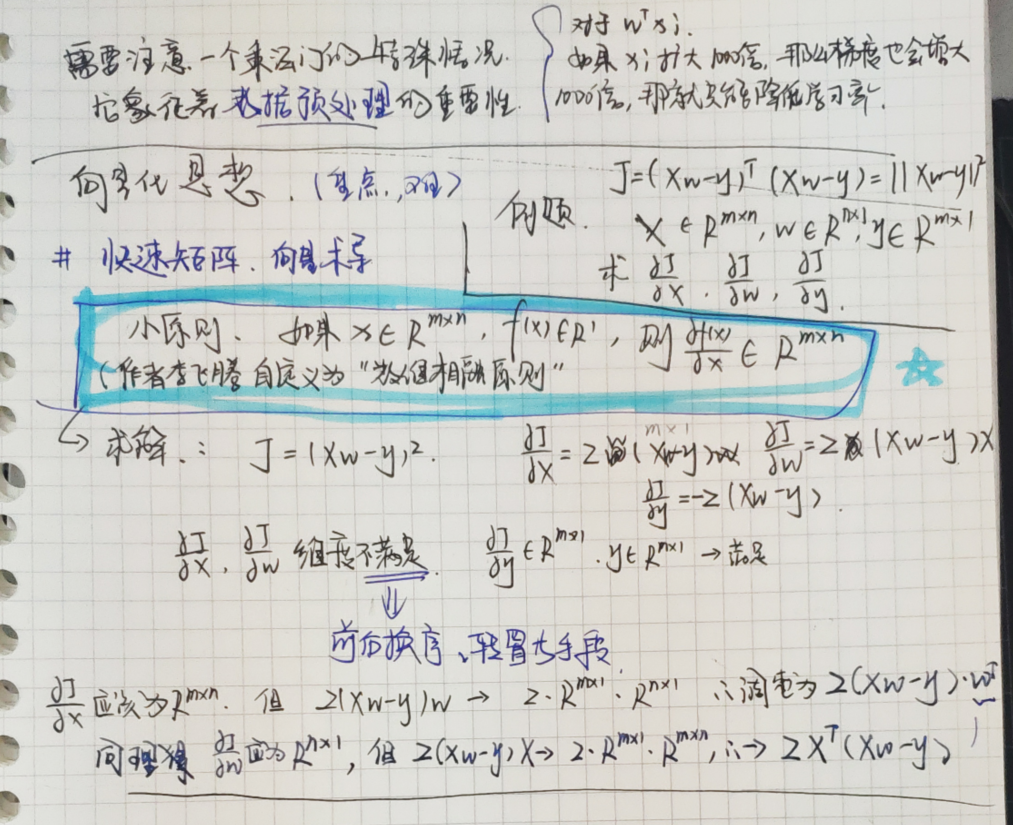 需要注意一个乘法门的特殊情况.
它象征着数据预处理的重要性.
对于 wᵀxi.
如果 xi 扩大 1000倍, 那么梯度也会增大
1000倍, 那就只能降低学习率.
向量化思想. (重点, 难)
# 快速矩阵、向量求导
例题. J=(Xw-y)ᵀ(Xw-y)=||Xw-y||²
X∈R^{m×n}, w∈R^{n×1}, y∈R^{m×1}
求 ∂J/∂X, ∂J/∂w, ∂J/∂y.
小原则、如果 x∈R^{m×n}, f(x)∈R¹, 则 ∂f(x)/∂x ∈ R^{m×n}
(作者李飞腾自定义为“数组相融原则”
求解.: J=(Xw-y)². ∂J/∂X=2(Xw-y)w ∂J/∂w=2(Xw-y)X
m×1
∂J/∂y=-2(Xw-y)
∂J/∂X, ∂J/∂w 维度不满足. ∂J/∂y∈R^{m×1}. y∈R^{m×1} → 满足
⇓
前后换序、转置为手段.
∂J/∂X 应该为R^{m×n}. 但 2(Xw-y)w → 2·R^{m×1}·R^{n×1} ∴调定为 2(Xw-y)·wᵀ
同理 ∂J/∂w 应为R^{n×1}, 但 2(Xw-y)X→2·R^{m×1}·R^{m×n}, ∴→ 2Xᵀ(Xw-y)